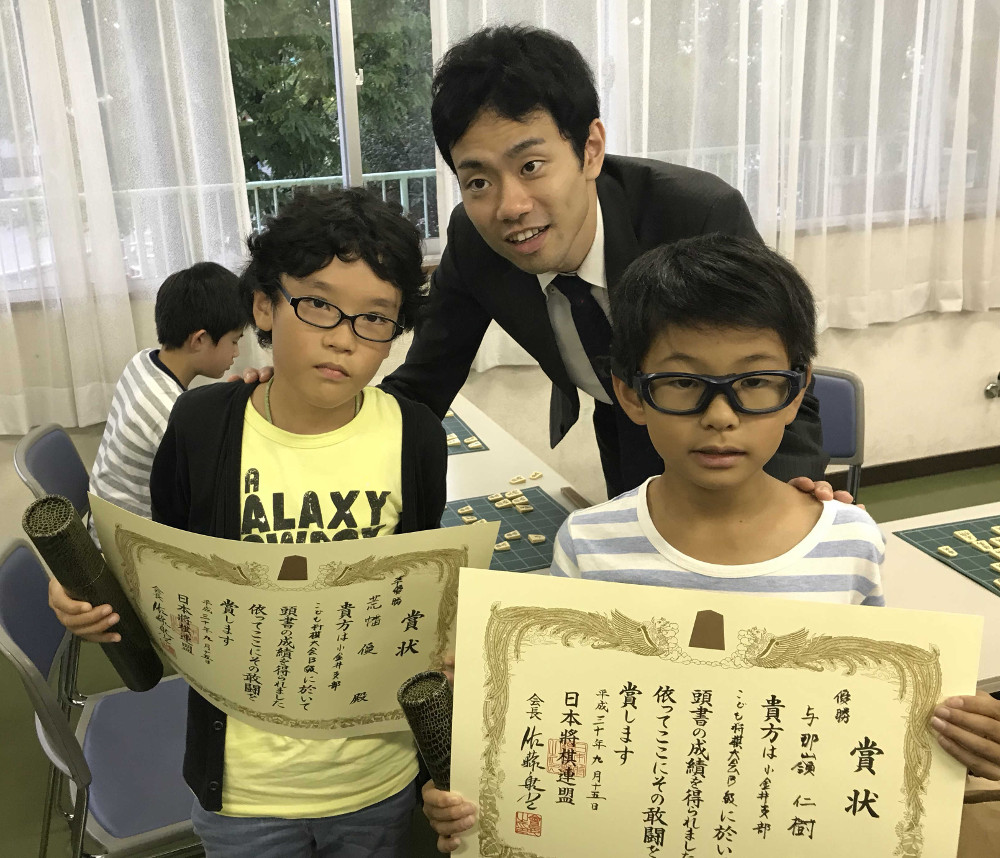 A
ALAXY
賞状
準優勝
荒幡
殿
貴方は小金井支部
こども将棋大会B級に於いて
頭書の成績を得られました
依ってここにその敢闘を
賞します
平成三十年九月十五日
日本將棋連盟
会長 佐藤康光
賞状
優勝
与那嶺 仁樹
貴方は小金井支部
こども将棋大会B級に於い
頭書の成績を得られました
依ってここにその敢闘を
賞します
平成三十年九月十五日
日本將棋連盟
会長 佐藤康光